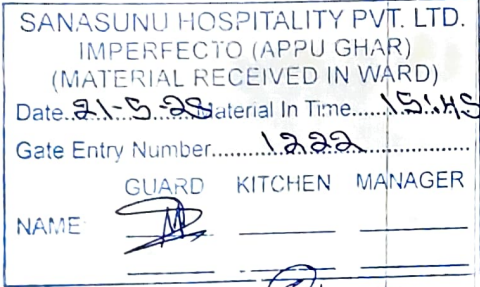 SANASUNU HOSPITALITY PVT. LTD.
IMPERFECTO (APPU GHAR)
(MATERIAL RECEIVED IN WARD)
Date..21-5-25Material In Time......15:45
Gate Entry Number..........1222..................
GUARD KITCHEN MANAGER
NAME